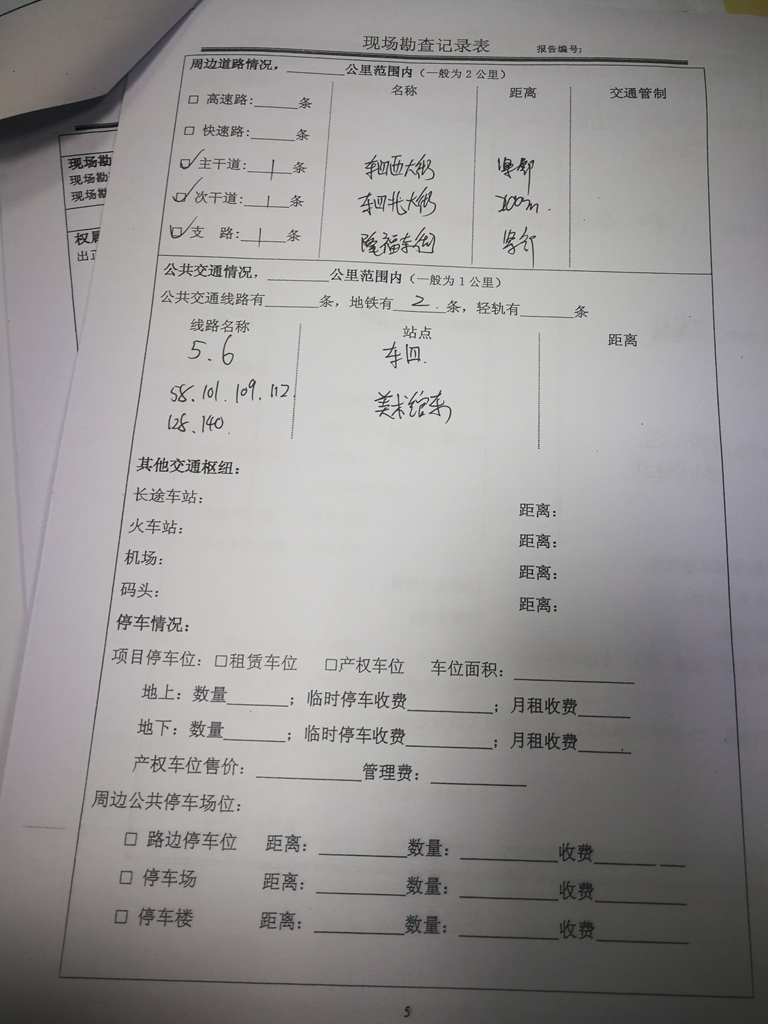 现场勘查记录表 报告编号:
周边道路情况,______公里范围内(一般为2公里)
名称 距离 交通管制
□ 高速路:_____条
□ 快速路:_____条
☑ 主干道: 1 条 东四西大街 紧邻
☑ 次干道: 1 条 东四北大街 200m.
☑ 支 路: 1 条 隆福东街
公共交通情况,_______公里范围内(一般为1公里)
公共交通线路有______条,地铁有 2 条,轻轨有______条
线路名称 站点 距离
5、6 东四.
58、101、109、112. 美术馆东
128、140.
其他交通枢纽:
长途车站: 距离:
火车站: 距离:
机场: 距离:
码头: 距离:
停车情况:
项目停车位:□租赁车位 □产权车位 车位面积:____________
地上:数量______;临时停车收费________;月租收费_____
地下:数量______;临时停车收费________;月租收费_____
产权车位售价:__________管理费:_________
周边公共停车场位:
□ 路边停车位 距离:________数量:_________收费________
□ 停车场 距离:________数量:_________收费________
□ 停车楼 距离:________数量:_________收费________
5
现场勘
现场勘
现场勘